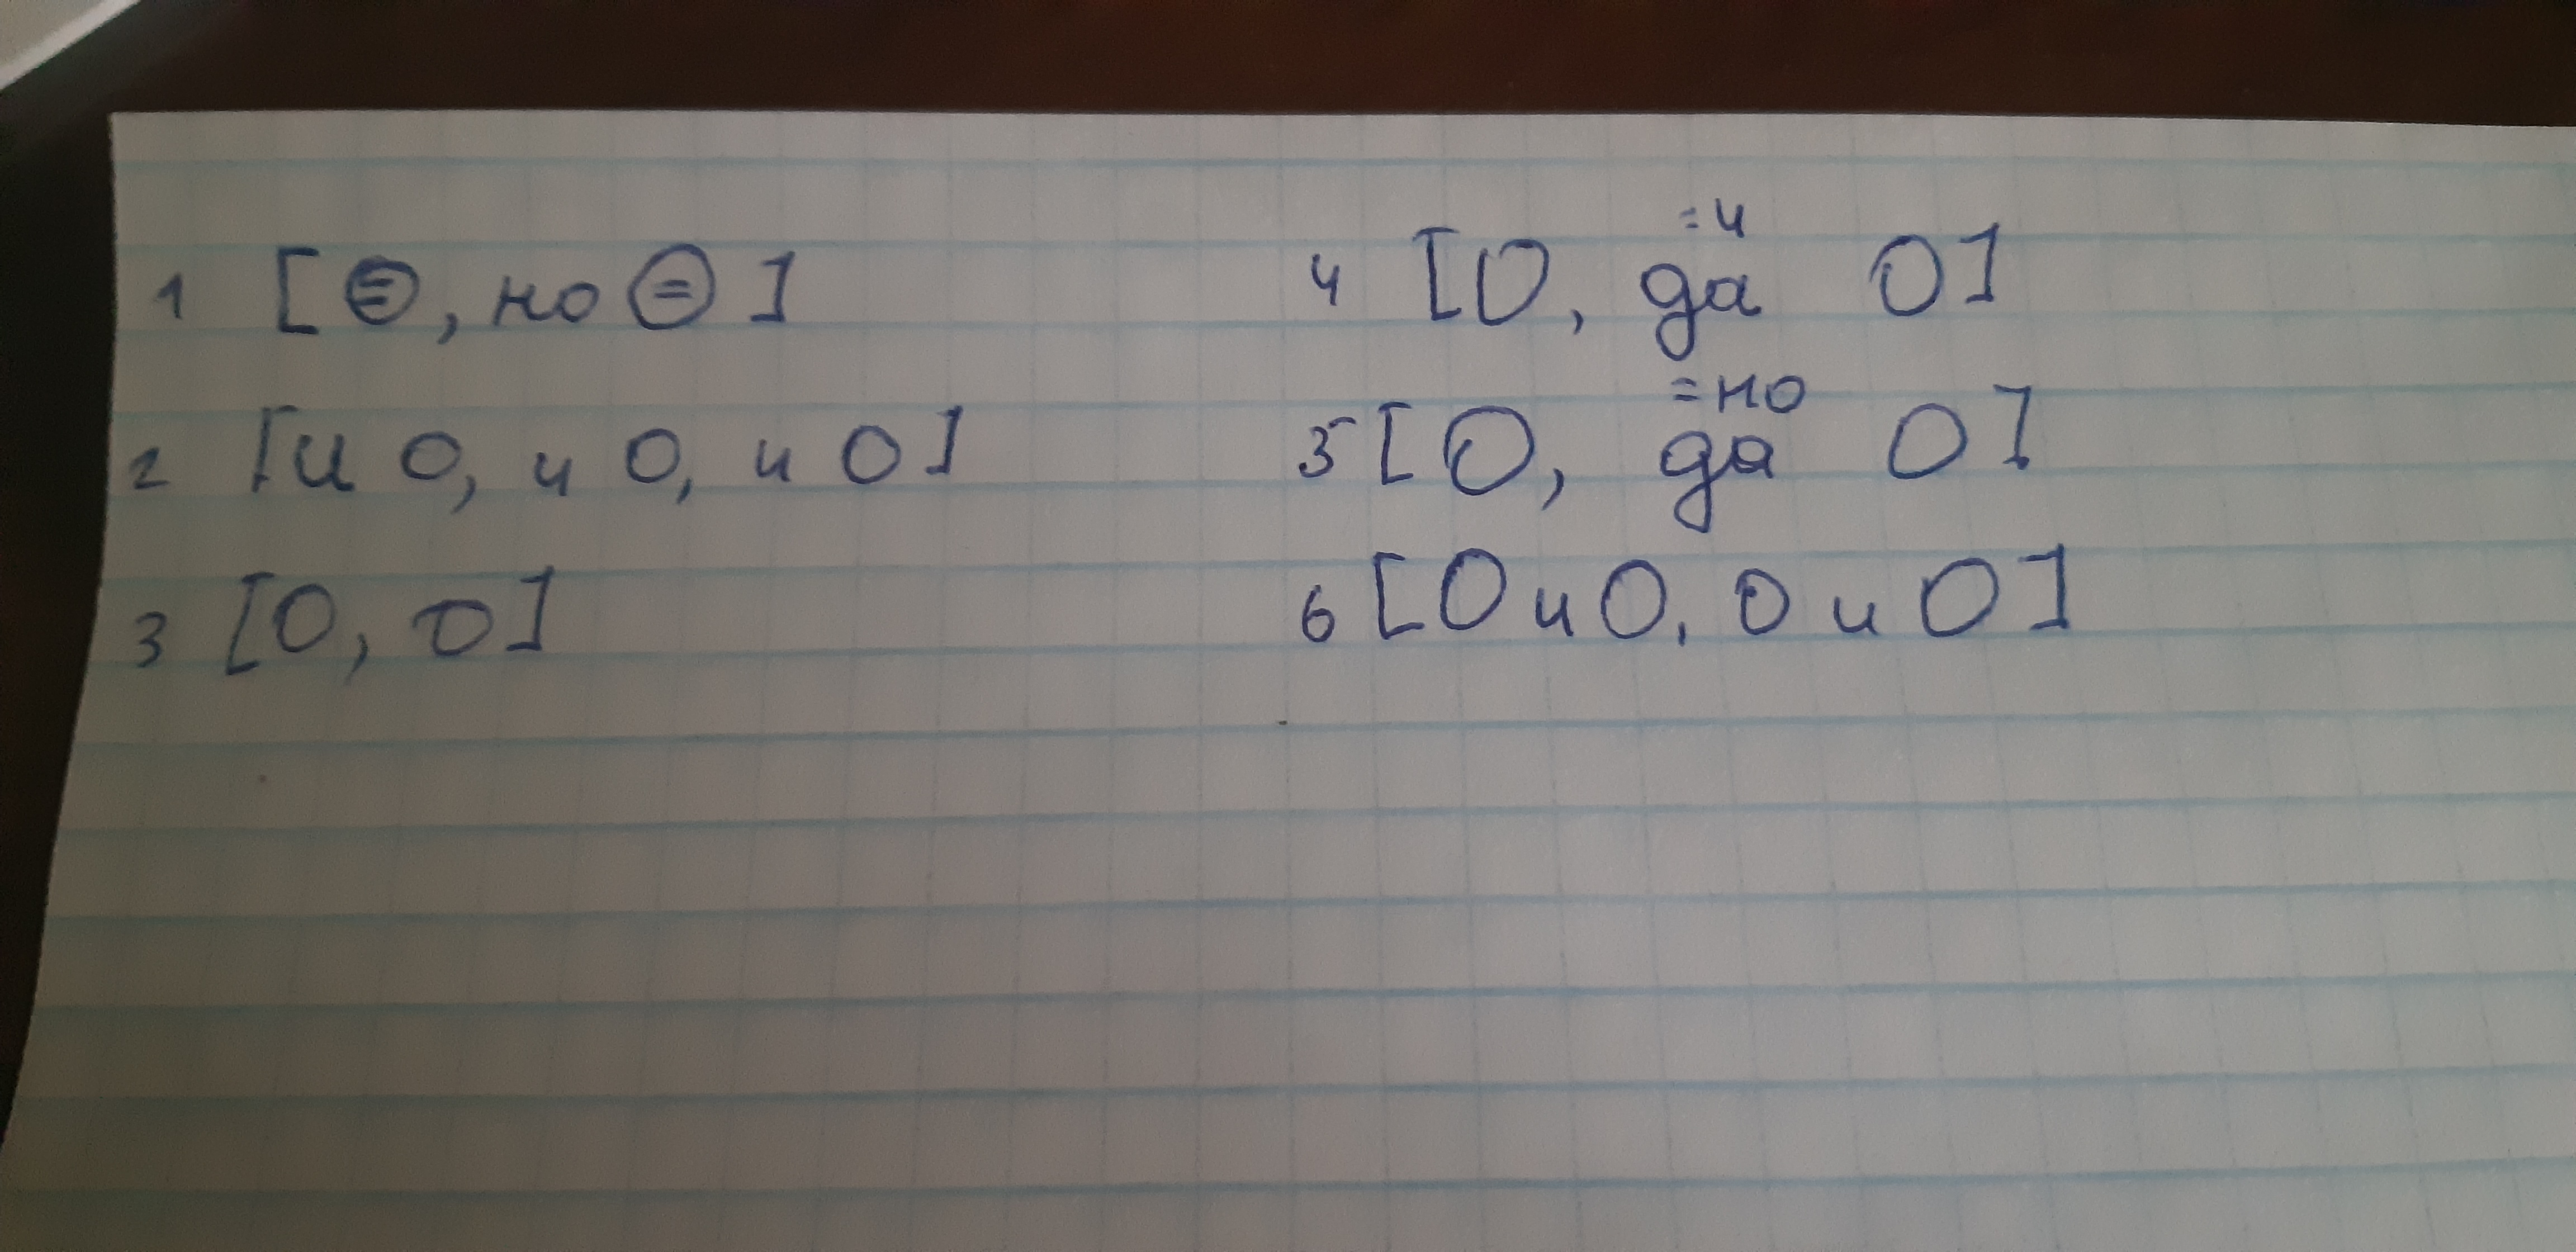 1 [⊜, но ⊜]
2 [и О, и О, и О]
3 [О, О]
=и
4 [О, да О]
=но
5 [О, да О]
6 [О и О, О и О]